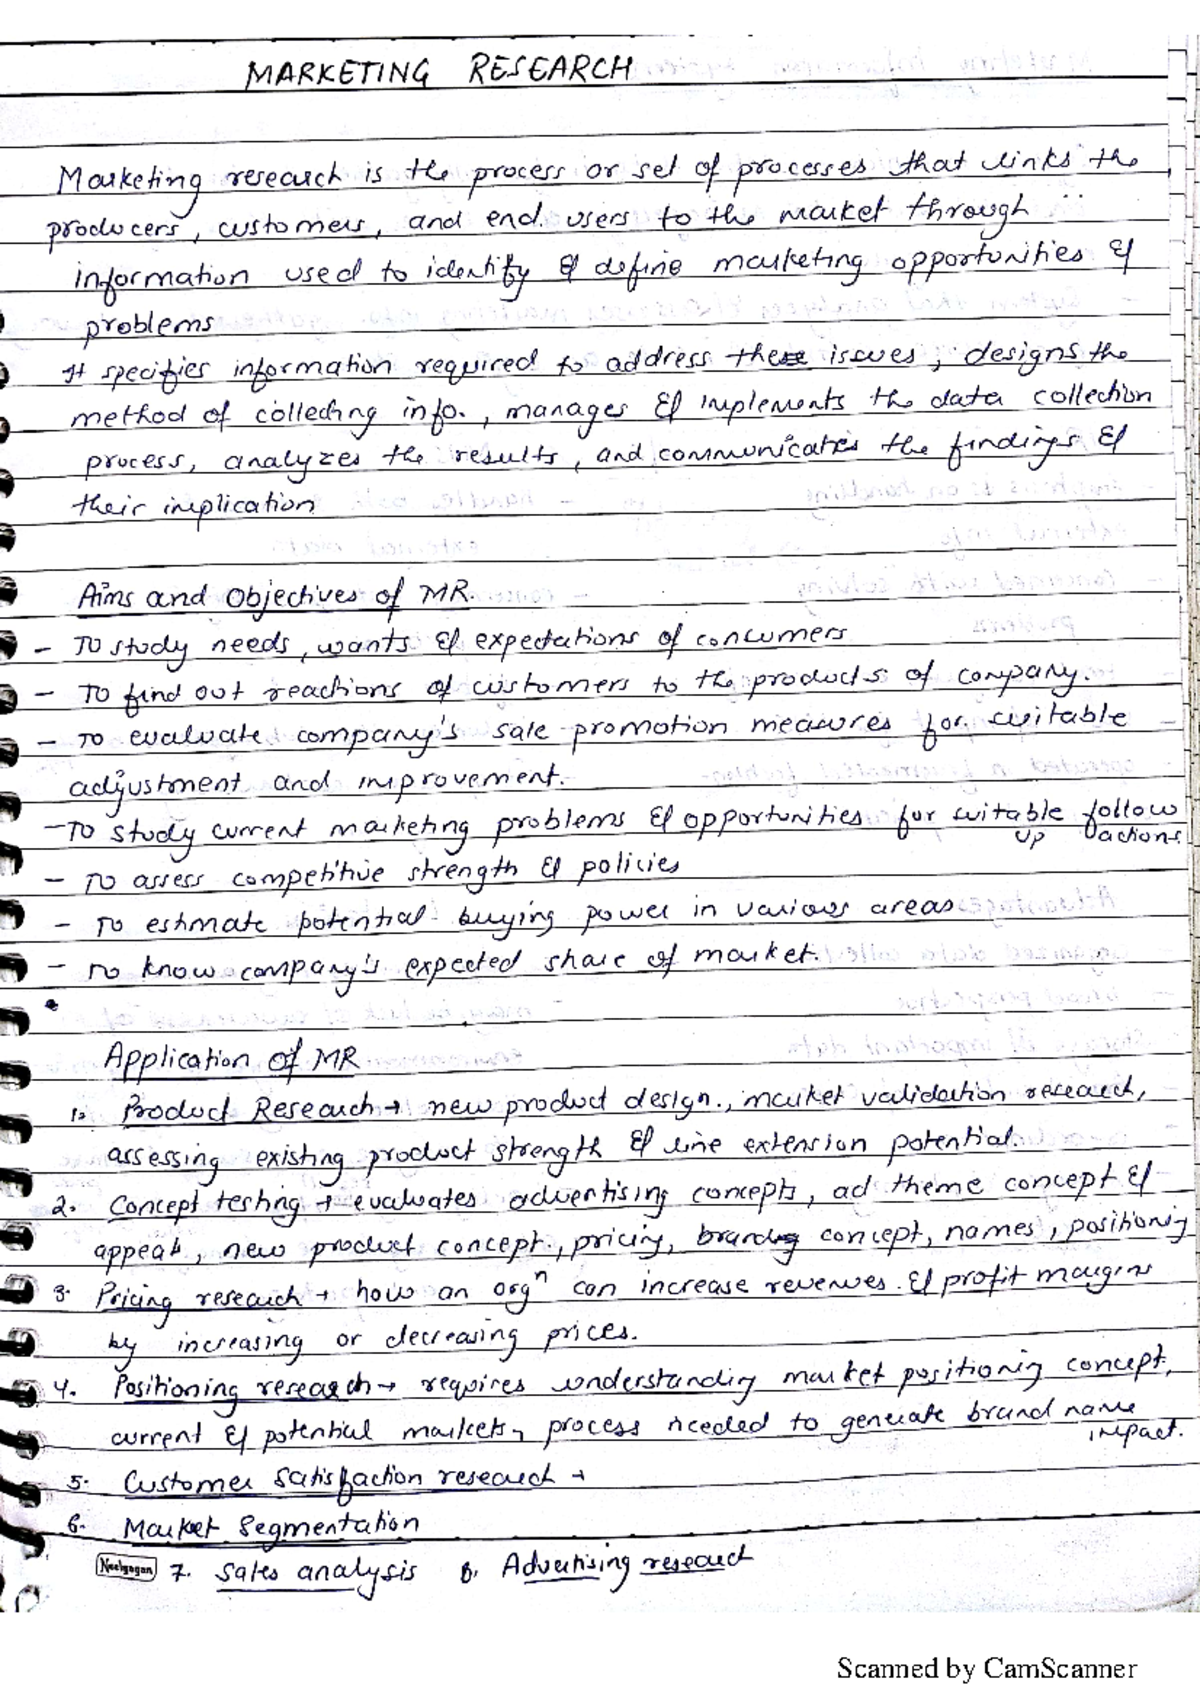 MARKETING RESEARCH
Marketing research is the process or set of processes that links the
producers, customers, and end users to the market through
information used to identify & define marketing opportunities &
problems
It specifies information required to address these issues, designs the
method of collecting info., manages & implements the data collection
process, analyzes the results, and communicates the findings &
their implication
Aims and Objectives of MR.
- To study needs, wants & expectations of concumers
- To find out reactions of customers to the products of company.
- To evaluate company's sale promotion measures for suitable
adjustment and improvement.
- To study current marketing problems & opportunities for suitable follow
up actions.
- To assess competitive strength & policies
- To estimate potential buying power in various areas
- To know company's expected share of market.
Application of MR
1. Product Research → new product design., market validation research,
assessing existing product strength & line extension potential.
2. Concept testing → evaluates advertising concepts, ad theme concept &
appeals, new product concept, pricing, brandng concept, names, positioning
3. Pricing research → how an orgn can increase revenues & profit margins
by increasing or decreasing prices.
4. Positioning research → requires understanding market positioning concept,
current & potential markets, process needed to generate brand name
impact.
5. Customer Satisfaction research →
6. Market Segmentation
Neelgagan 7. Sales analysis 8. Advertising research
Scanned by CamScanner